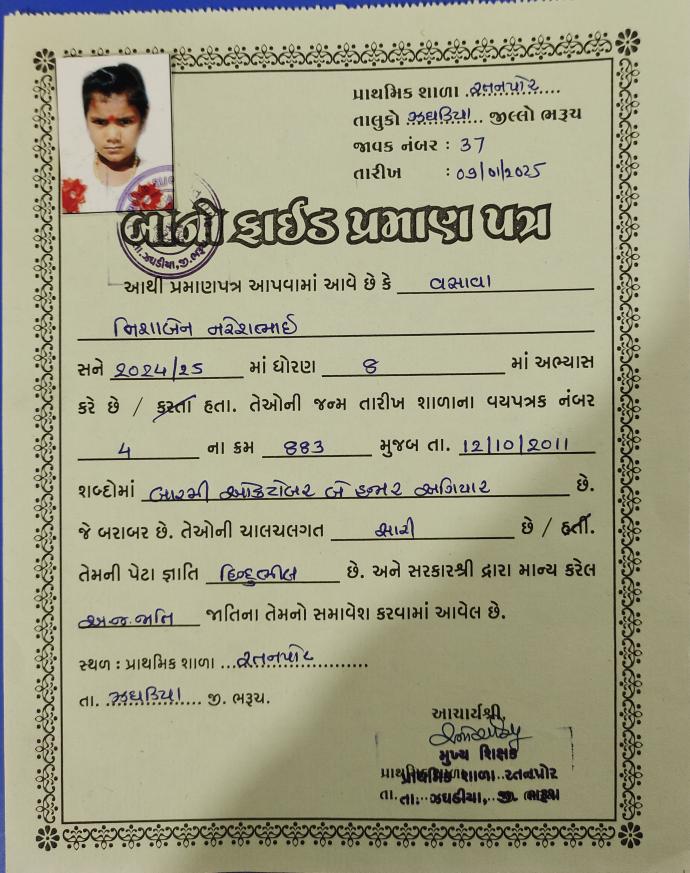 પ્રાથમિક શાળા .રતનપોર....
તાલુકો ઝઘડિયા... જીલ્લો ભરૂચ
જાવક નંબર : 37
તારીખ : ૦૭/૦૧/૨૦૨૫
બોનોફાઈડ પ્રમાણ પત્ર
તા. ઝઘડીયા, જી. ભરૂચ
આથી પ્રમાણપત્ર આપવામાં આવે છે કે વસાવા
નિશાબેન નરેશભાઈ
સને ૨૦૨૪/૨૫ માં ધોરણ 8 માં અભ્યાસ
કરે છે / કરતા હતા. તેઓની જન્મ તારીખ શાળાના વયપત્રક નંબર
4 ના ક્રમ 883 મુજબ તા. 12/10/2011
શબ્દોમાં બારમી ઓક્ટોબર બે હજાર અગિયાર છે.
જે બરાબર છે. તેઓની ચાલચલગત સારી છે / હતી.
તેમની પેટા જ્ઞાતિ હિન્દુભીલ છે. અને સરકારશ્રી દ્રારા માન્ય કરેલ
અ.જ.જાતિ જાતિના તેમનો સમાવેશ કરવામાં આવેલ છે.
સ્થળ : પ્રાથમિક શાળા ...રતનપોર......................
તા. ઝઘડિયા.... જી. ભરૂચ.
આચાર્યશ્રી,
મુખ્ય શિક્ષક
પ્રાથમિક શાળા રતનપોર
તા. ઝઘડીયા, જી. ભરૂચ